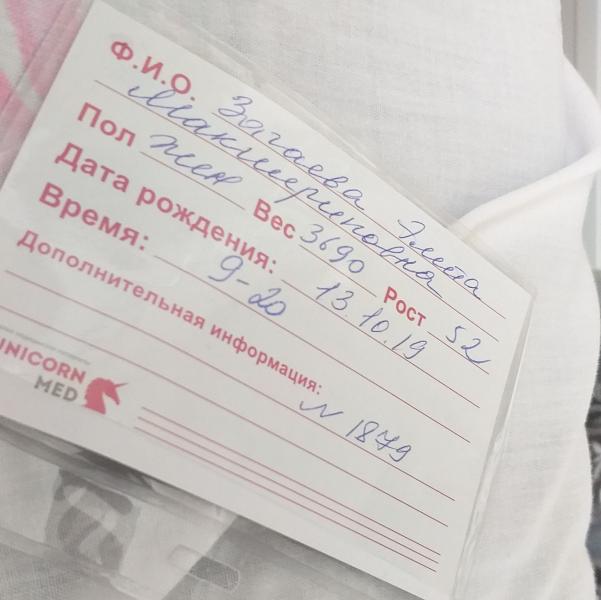 Ф.И.О. Загаева Элита
Макшериповна
Пол жен Вес 3690 Рост 52
Дата рождения: 13.10.19
Время: 9-20
Дополнительная информация:
N 1879
UNICORN
MED